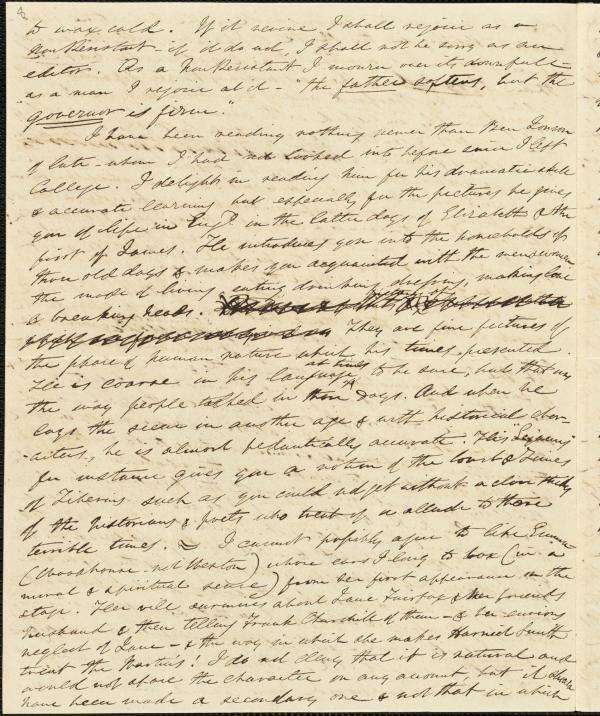 to wax cold. If it revive I shall rejoice as a
Non Resistant - if it do not, I shall not be sorry as an
editor. As a Non Resistant I mourn over its downfall -
as a man I rejoice at it - the father softens, but the
Governor is firm."
I have been reading nothing newer than Ben Jonson
of late - whom I had not looked into before since I left
College. I delight in reading him for his dramatic skill
& accurate learning but especially for the pictures he gives
you of life in Engd in the latter days of Elizabeth & the
first of James. He introduces you into the households of
those old days & makes you acquainted with the men & women
the mode of living, eating drinking, dressing, making love
& breaking heads. They are fine pictures of
the phase of human nature which his times presented.
He is coarse in his language at times to be sure, but that was
the way people talked in those days. And when he
lays the scene in another age & with historical char-
acters, he is almost pedantically accurate. His "Sejanus"
for instance gives you a notion of the Court & Times
of Tiberius such as you could not get without a close study
of the historians & poets who treat of or allude to those
terrible times. - I cannot possibly agree to like Emma
(Woodhouse - not Weston) whose ears I long to box (in a
moral & spiritual sense) from her first appearance on the
stage. Her evil surmises about Jane Fairfax & her friends
husband & then telling Frank Churchill of them - & her envious
neglect of Jane - & the way in which she makes Harriet Smith
treat the Martins! I do not deny that it is natural and
would not spare the character on any account, but it should
have been made a secondary one & not that in which